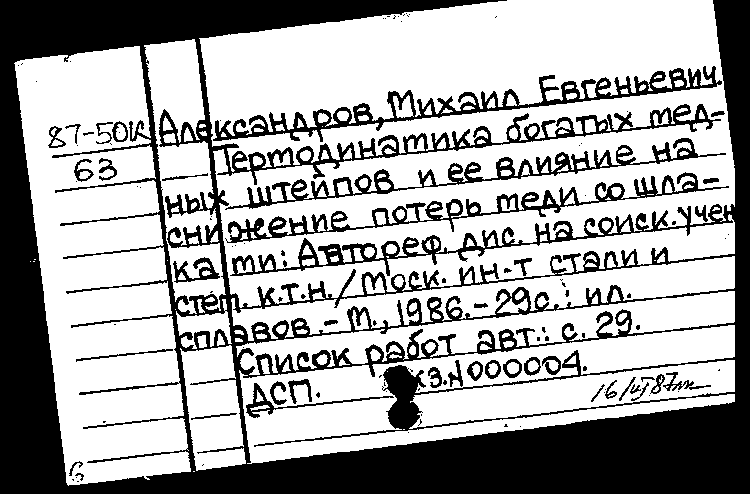 87-50К Александров, Михаил Евгеньевич.
63 Термодинамика богатых мед-
ных штейнов и ее влияние на
снижение потерь меди со шла-
ками: Автореф. дис. на соиск. учен
степ. к.т.н. / Моск. ин-т стали и
сплавов. - М., 1986. - 29с.: ил.
Список работ авт.: с. 29.
ДСП. кз. N000004.
6